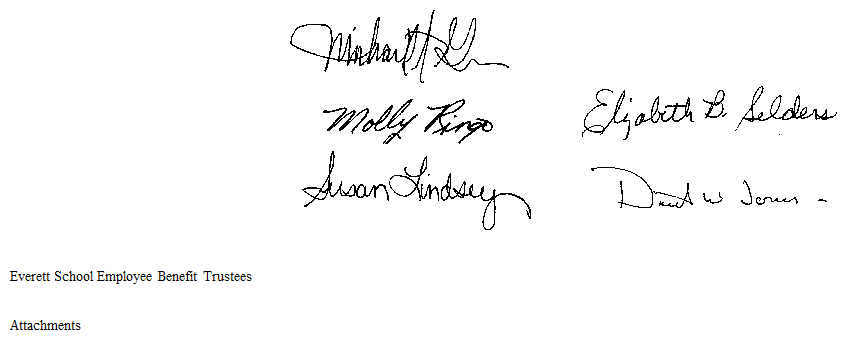 Molly Ringo Elizabeth B. Selders
Susan Lindsey David W Jones
Everett School Employee Benefit Trustees
Attachments